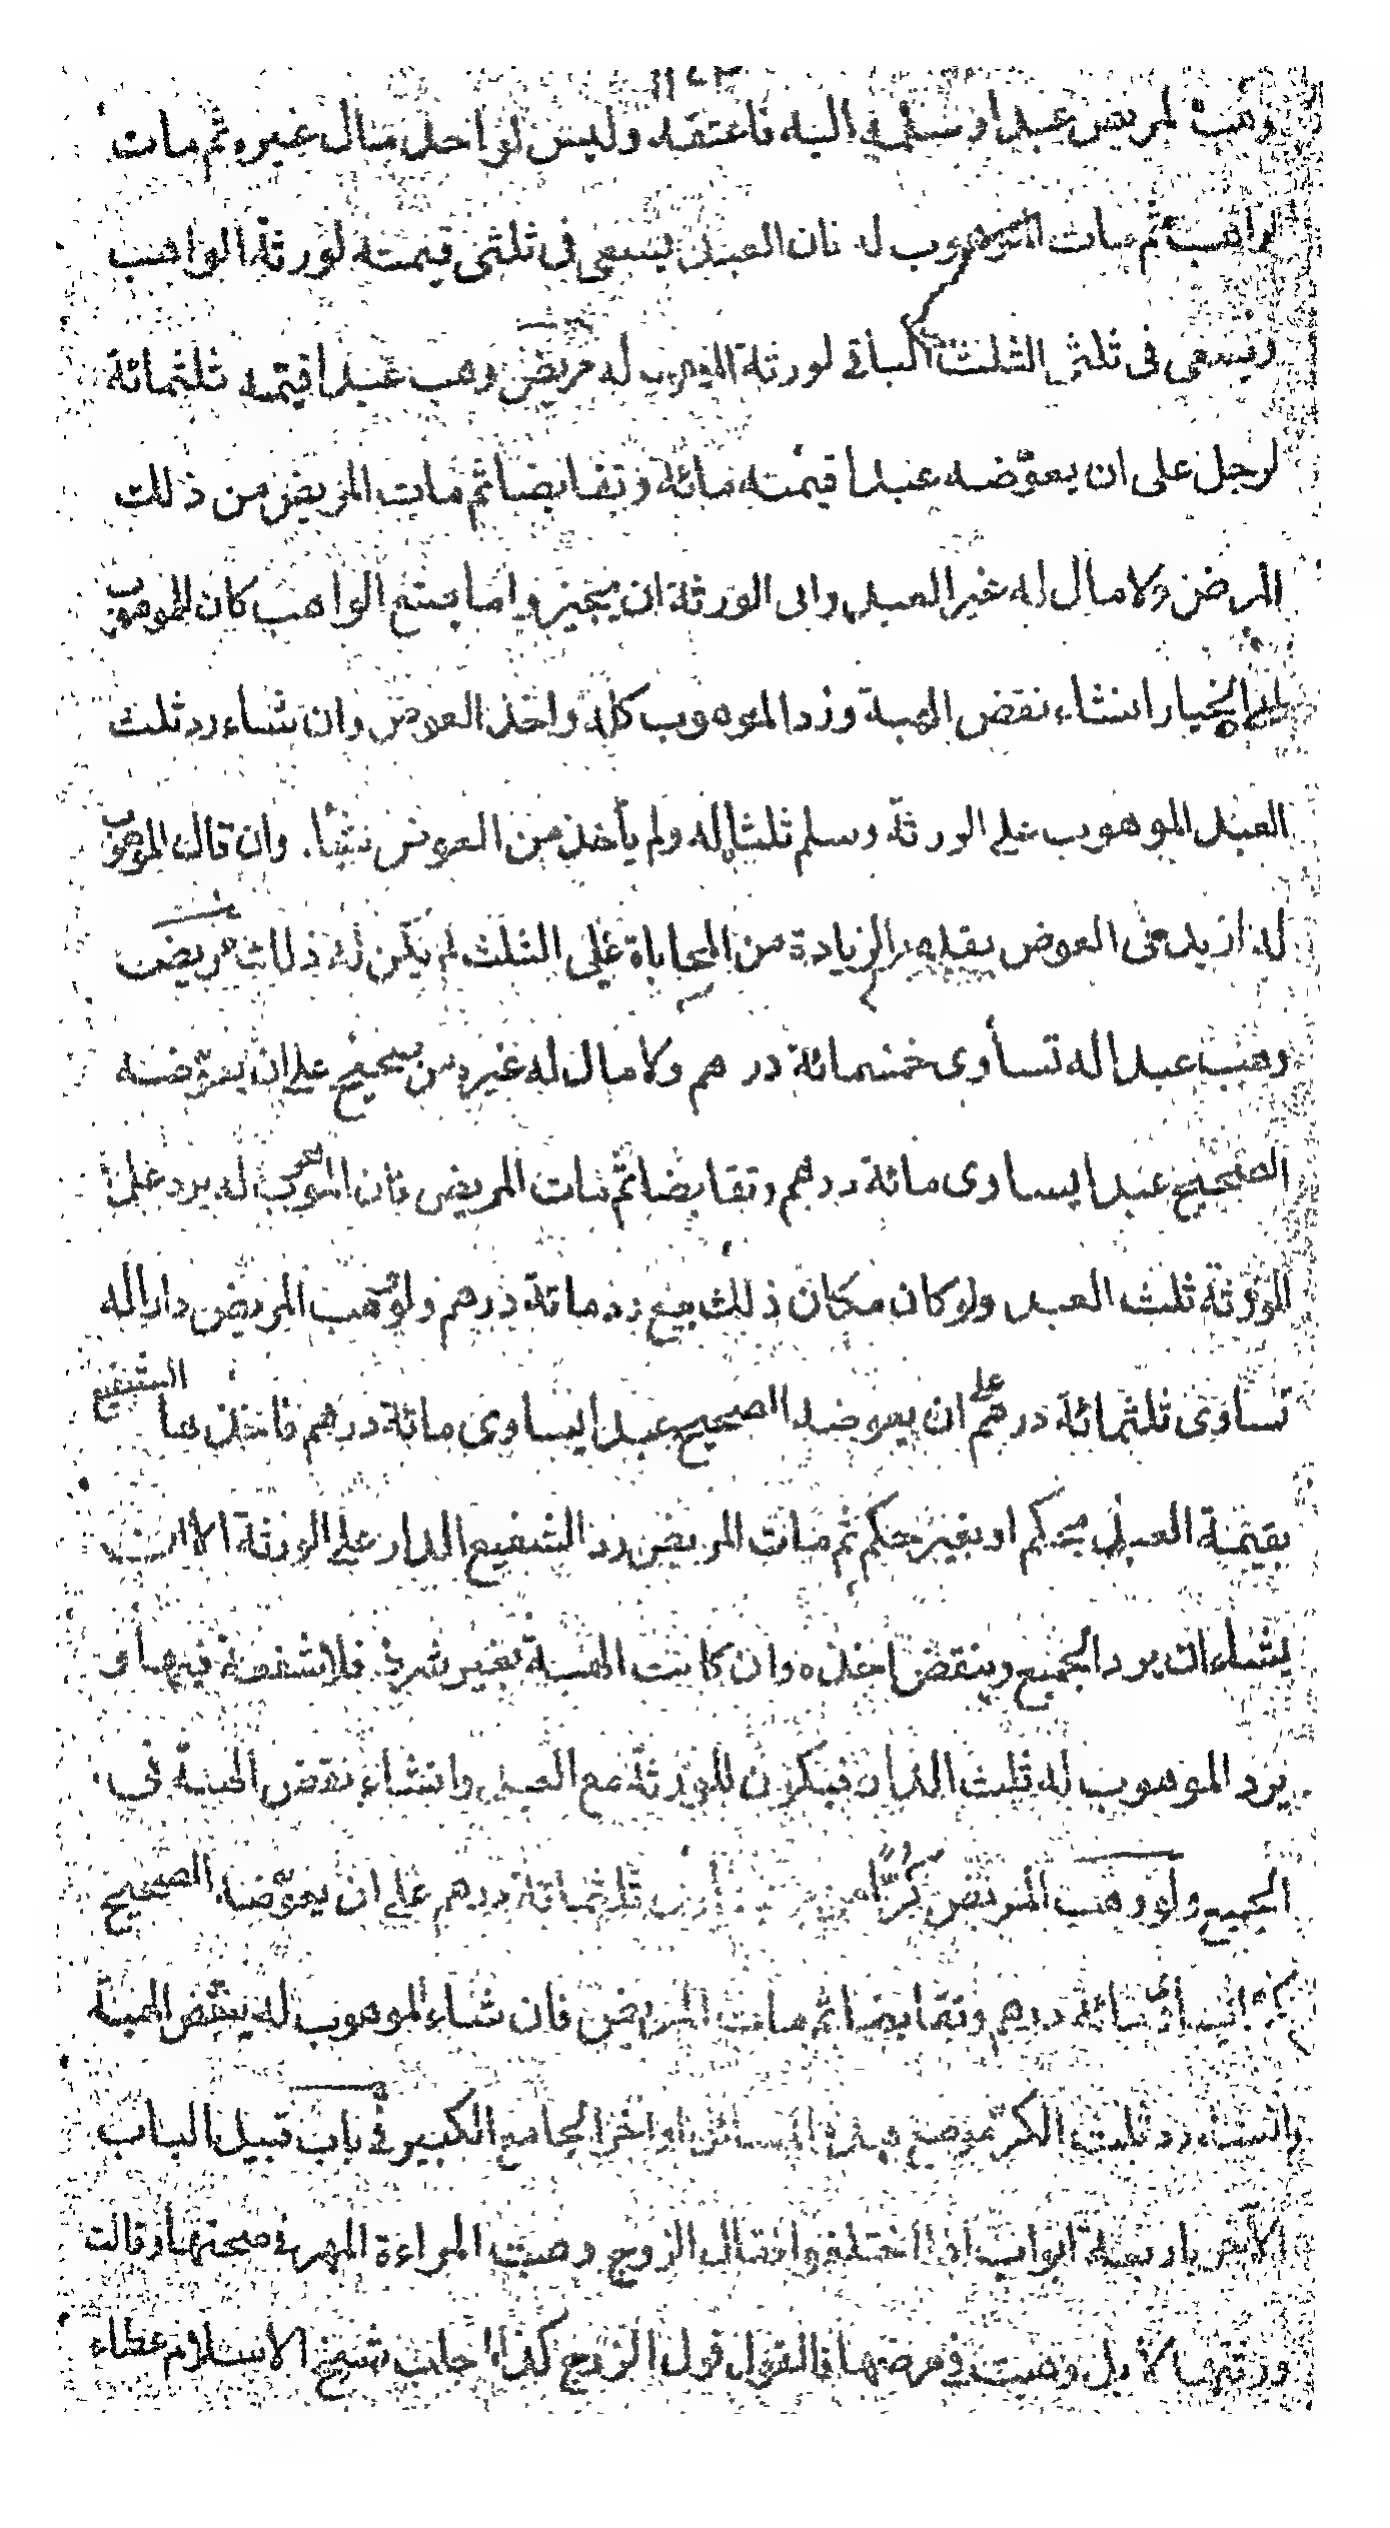 وهب لمريض عبدا وسلمه اليه فاعتقه وليس لواحد مال غيره ثم مات
الواهب ثم مات الموهوب له فان العبد يسعى فى ثلثى قيمته لورثة الواهب
ويسعى فى ثلثى الثلث الباقى لورثة الموهوب له مريض وهب عبدا قيمته ثلثمائة
لرجل على ان يعوّضه عبدا قيمته مائة وتقابضا ثم مات المريض من ذلك
المرض ولا مال له غير العبد وابى الورثة ان يجيزوا ما صنع الواهب كان للموهوب
له الخيار انشاء نقض الهبة ورد الموهوب كله واخذ العوض وان شاء رد ثلث
العبد الموهوب على الورثة وسلم ثلثاه له ولم يأخذ من العوض شيئا. وان قال الموهوب
له ازيد فى العوض بقدر الزيادة من المحاباة على الثلث لم يكن له ذلك مريض
وهب عبدا له تساوى خمسمائة درهم ولا مال له غيره من صحيح على ان يعوّضه
الصحيح عبدا يساوى مائة درهم وتقابضا ثم مات المريض فان الموهوب له يرد على
الورثة ثلث العبد ولو كان مكان ذلك بيع رد مائة درهم ولو وهب المريض دارا له
تساوى ثلثمائة درهم على ان يعوضه الصحيح عبدا يساوى مائة درهم فاخذها الشفيع
بقيمة العبد بحكم او بغير حكم ثم مات المريض رد الشفيع ثلث الدار على الورثة الا ان
يشاء ان يرد الجميع وينقض اخذه وان كانت الهبة بغير شرط فلا شفعة فيها و
يرد الموهوب له ثلث الدار فيكون للورثة مع العبد وانشاء نقض الهبة فى
الجميع ولو وهب المريض كرّا ثلثمائة درهم على ان يعوّضه الصحيح
مائة درهم وتقابضا ثم مات المريض فان شاء الموهوب له ينقض الهبة
وانشاء رد ثلث الكر موضع هذه المسائل اواخر الجامع الكبير فى باب قبيل الباب
الآخر باربعة ابواب اذا اختلفوا فقال الزوج وهبت المراءة المهر فى صحتها وقالت
ورثتها لا بل وهبت فى مرضها فالقول قول الزوج كذا اجاب شيخ الاسلام عطاء